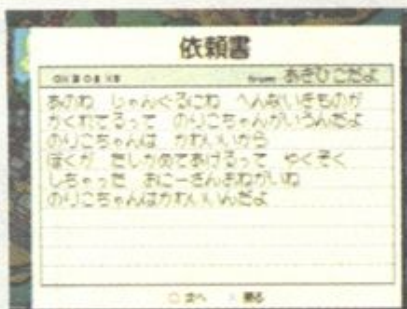 依頼書
from: あきひこだよ
あのね じゃんぐるにね へんないきものが
かくれてるって のりこちゃんがいうんだよ
のりこちゃんは かわいいから
ぼくが たしかめてあげるって やくそく
しちゃった おにーさんおねがいね
のりこちゃんはかわいいんだよ
○ 次へ × 戻る